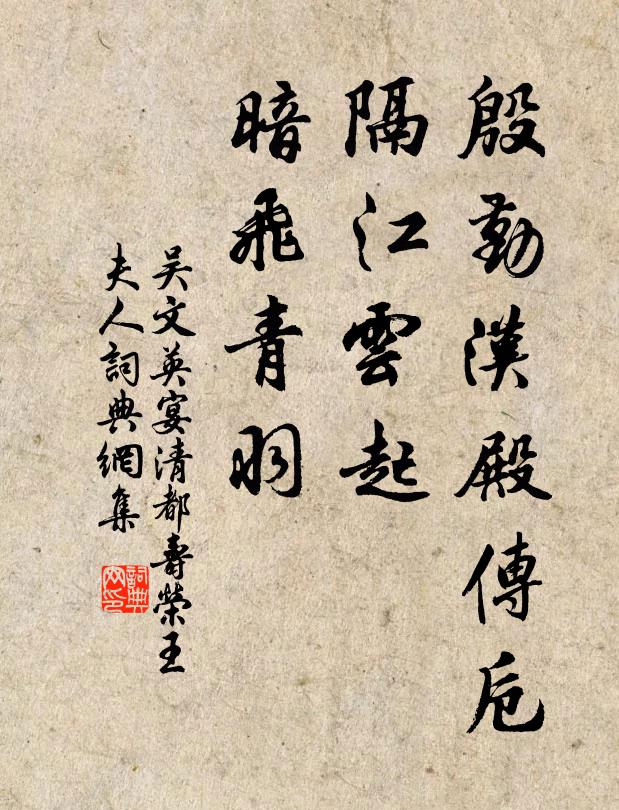 殷勤漢殿傳卮
隔江雲起
暗飛青羽
吳文英宴清都壽榮王
夫人詞典網集
詞典
网印